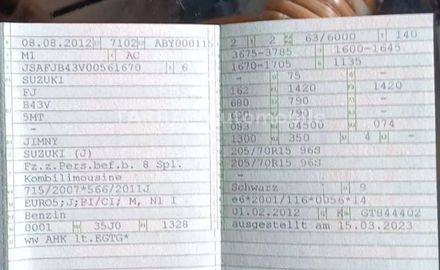 08.08.2012 7102 ABY000115
M1 AC
JSAFJB43V00561670 6
SUZUKI
FJ
B43V
5MT
-
JIMNY
SUZUKI (J)
Fz.z.Pers.bef.b. 8 Spl.
Kombilimousine
715/2007*566/2011J
EURO5;J;BI/CI; M, N1 I
Benzin
0001 35J0 1328
ww AHK lt.EGTG*
2 2 63/6000 140
3675-3785 1600-1645
1670-1705 1135
- 75 -
162 1420 1420
680 790
790
083 04500 074
1300 350 4 -
205/70R15 96S
205/70R15 96S
-
Schwarz 9
e6*2001/116*0056*14
01.02.2012 K GT844402
ausgestellt am 15.03.2023